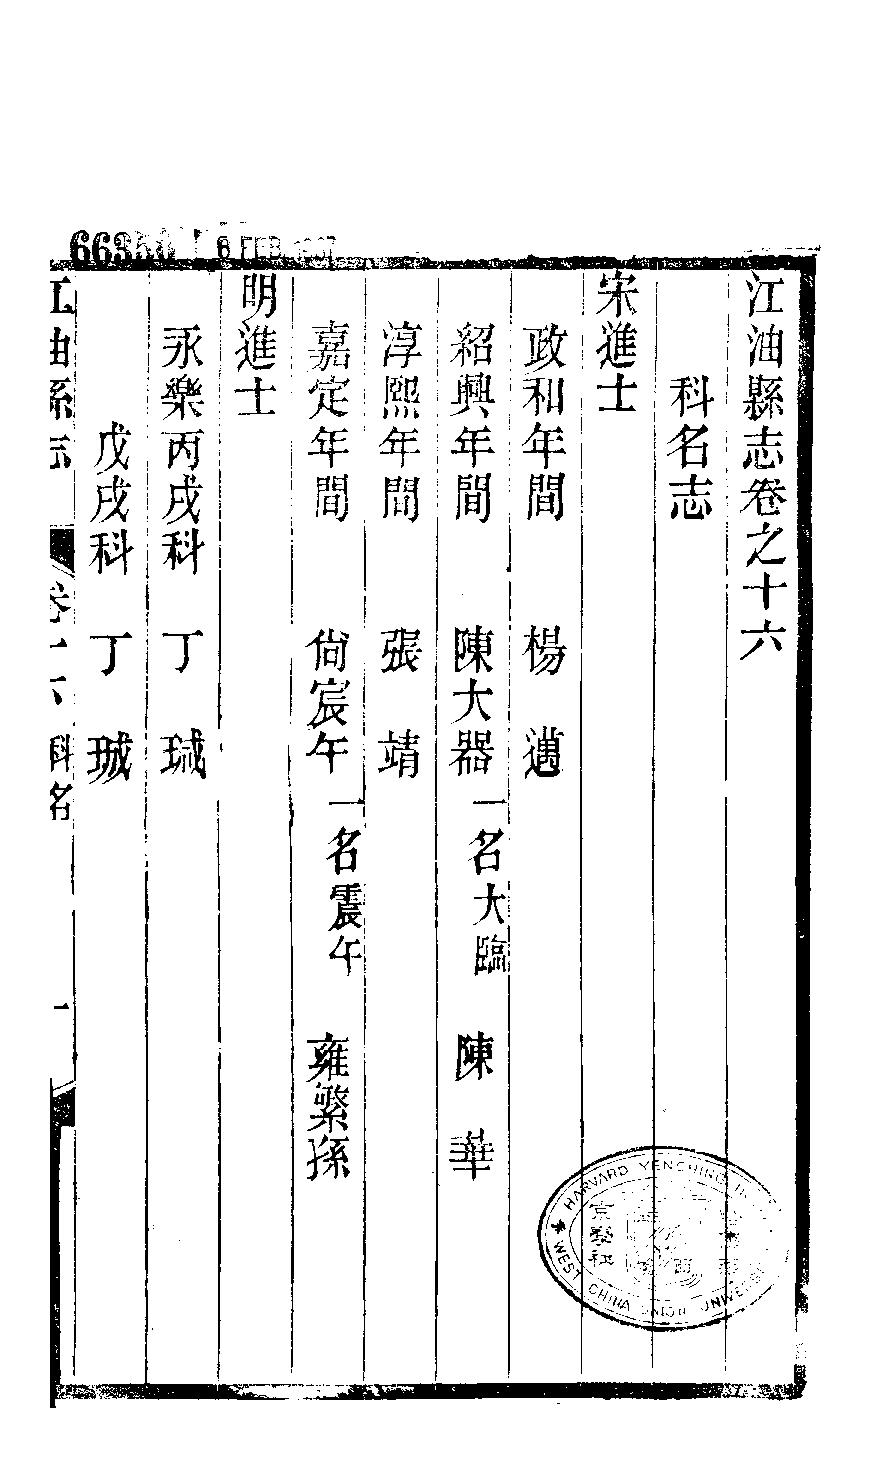 江油縣志卷之十六
科名志
宋進士
政和年間　楊　邁
紹興年間　陳大器一名大臨　陳　華
淳熙年間　張　靖
嘉定年間　尙宸午一名震午　雍繁孫
明進士
永樂丙戌科　丁　瑊
戊戌科　丁　珹
江油縣志　卷十六　科名　一
HARVARD YENCHING
WEST CHINA UNION UNIVERSITY